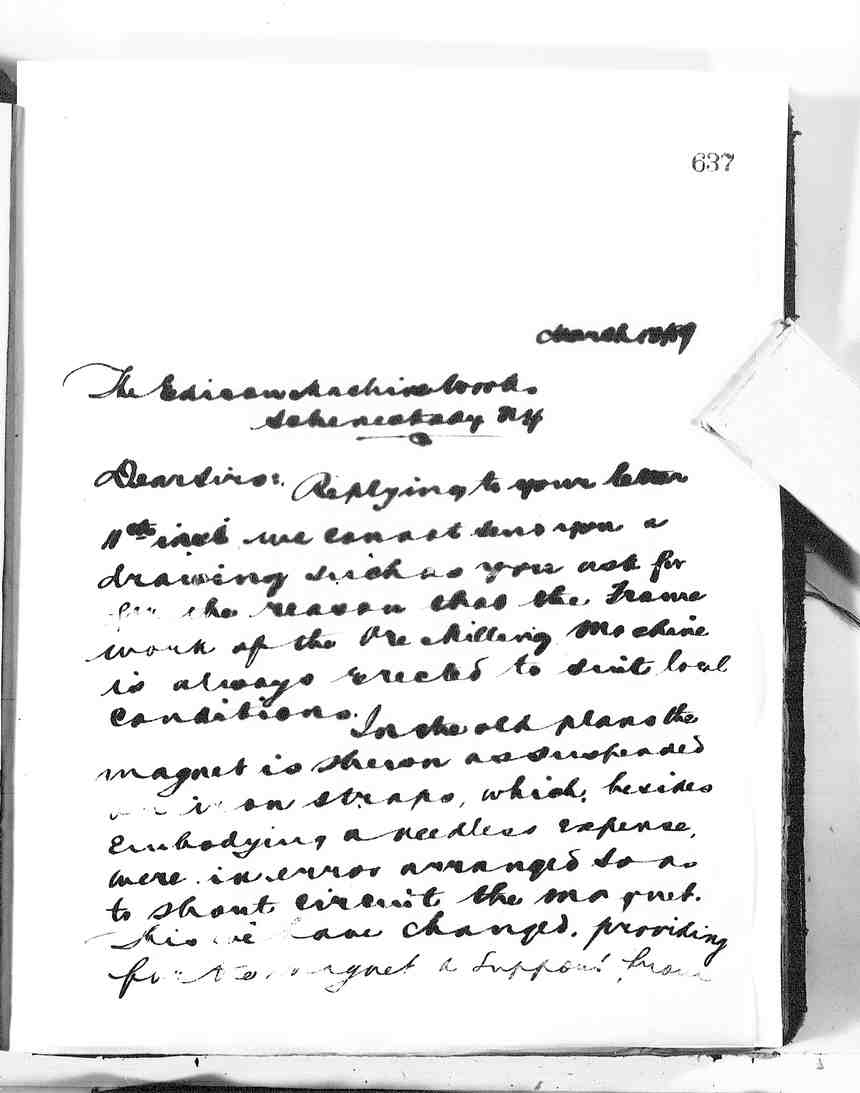 637
March
The Edison Machine Works
Schenectady NY
Dear Sirs:. Replying to your letter
11th inst we cannot send you a
drawing such as you ask for
for the reason that the Frame
work of the Ore Milling Machine
is always erected to suit local
conditions. In the old plans the
magnet is shewn as suspended
on iron straps, which, besides
Embodying a needless expense,
were in error arranged so as
to short circuit the magnet.
This we have changed, providing
for the magnet a support from